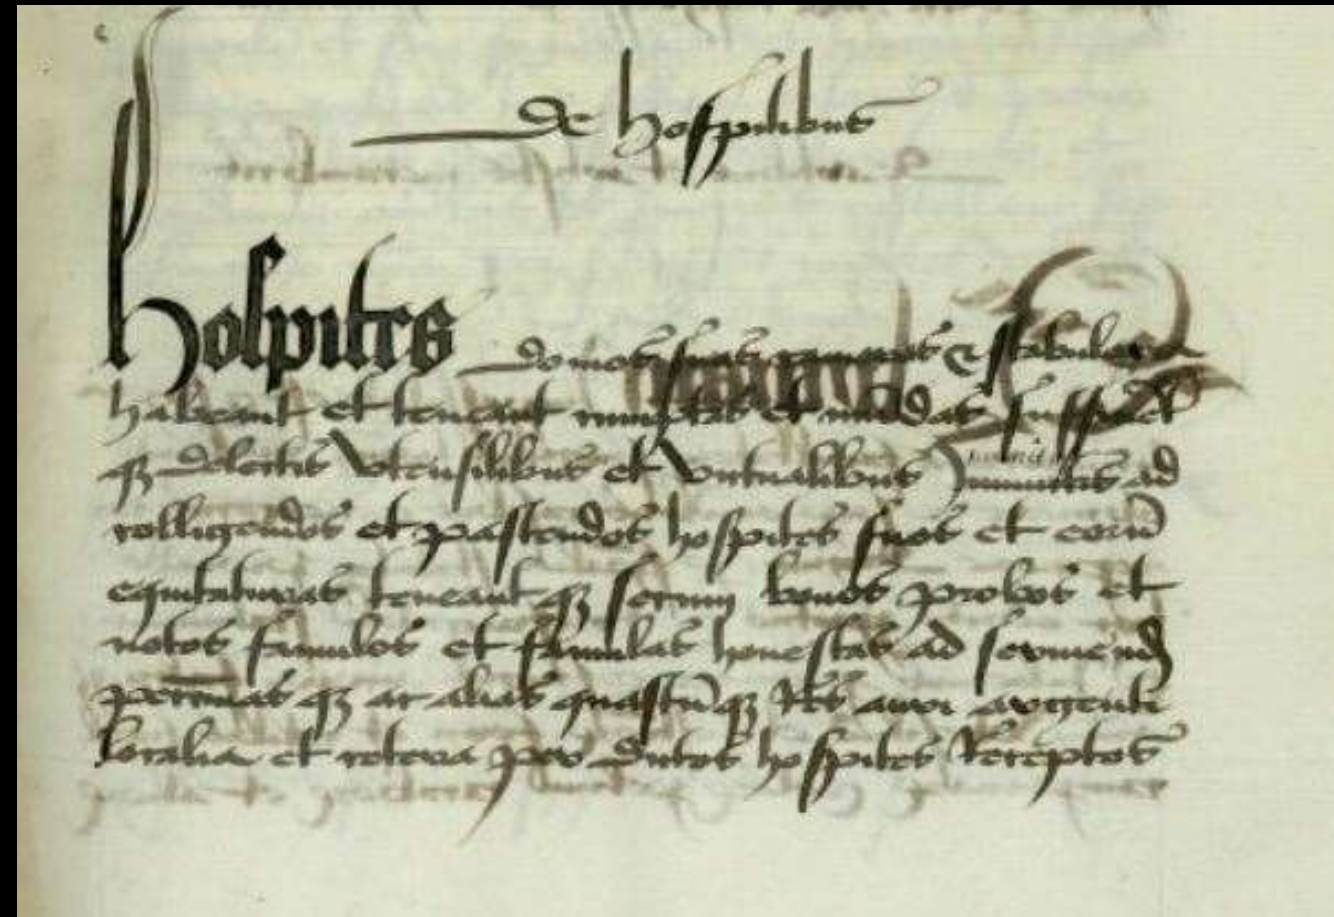 de hospitibus
Hospites domos suas cameras & stabula
habeant et teneant et mundas
qz utensilibus et victualibus ad
colligendos et pascendos hospites suos et eorũ
equitaturas teneant qz semp bonos probos et
notos famulos et famulas honestas ad seruiend
peccunias qz ac alias quascũqz res auri argenti
localia et cetera per dictos hospites receptos